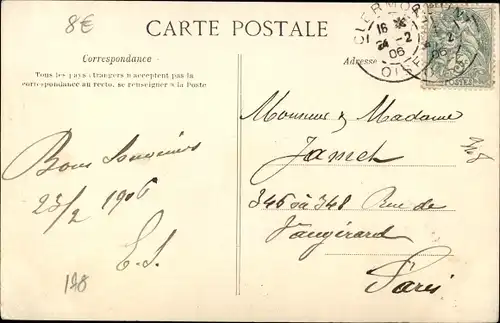 8€
CARTE POSTALE
CLERMONT
OISE
16
24 - 2
06
POSTES
Correspondance
Tous les pays étrangers n'acceptent pas la
correspondance au recto, se renseigner à la Poste
Adresse
Bons Souvenirs
23/2 1906
E.S.
198
Monsieur & Madame
Jamet
346 à 348 Rue de
Vaugirard
Paris